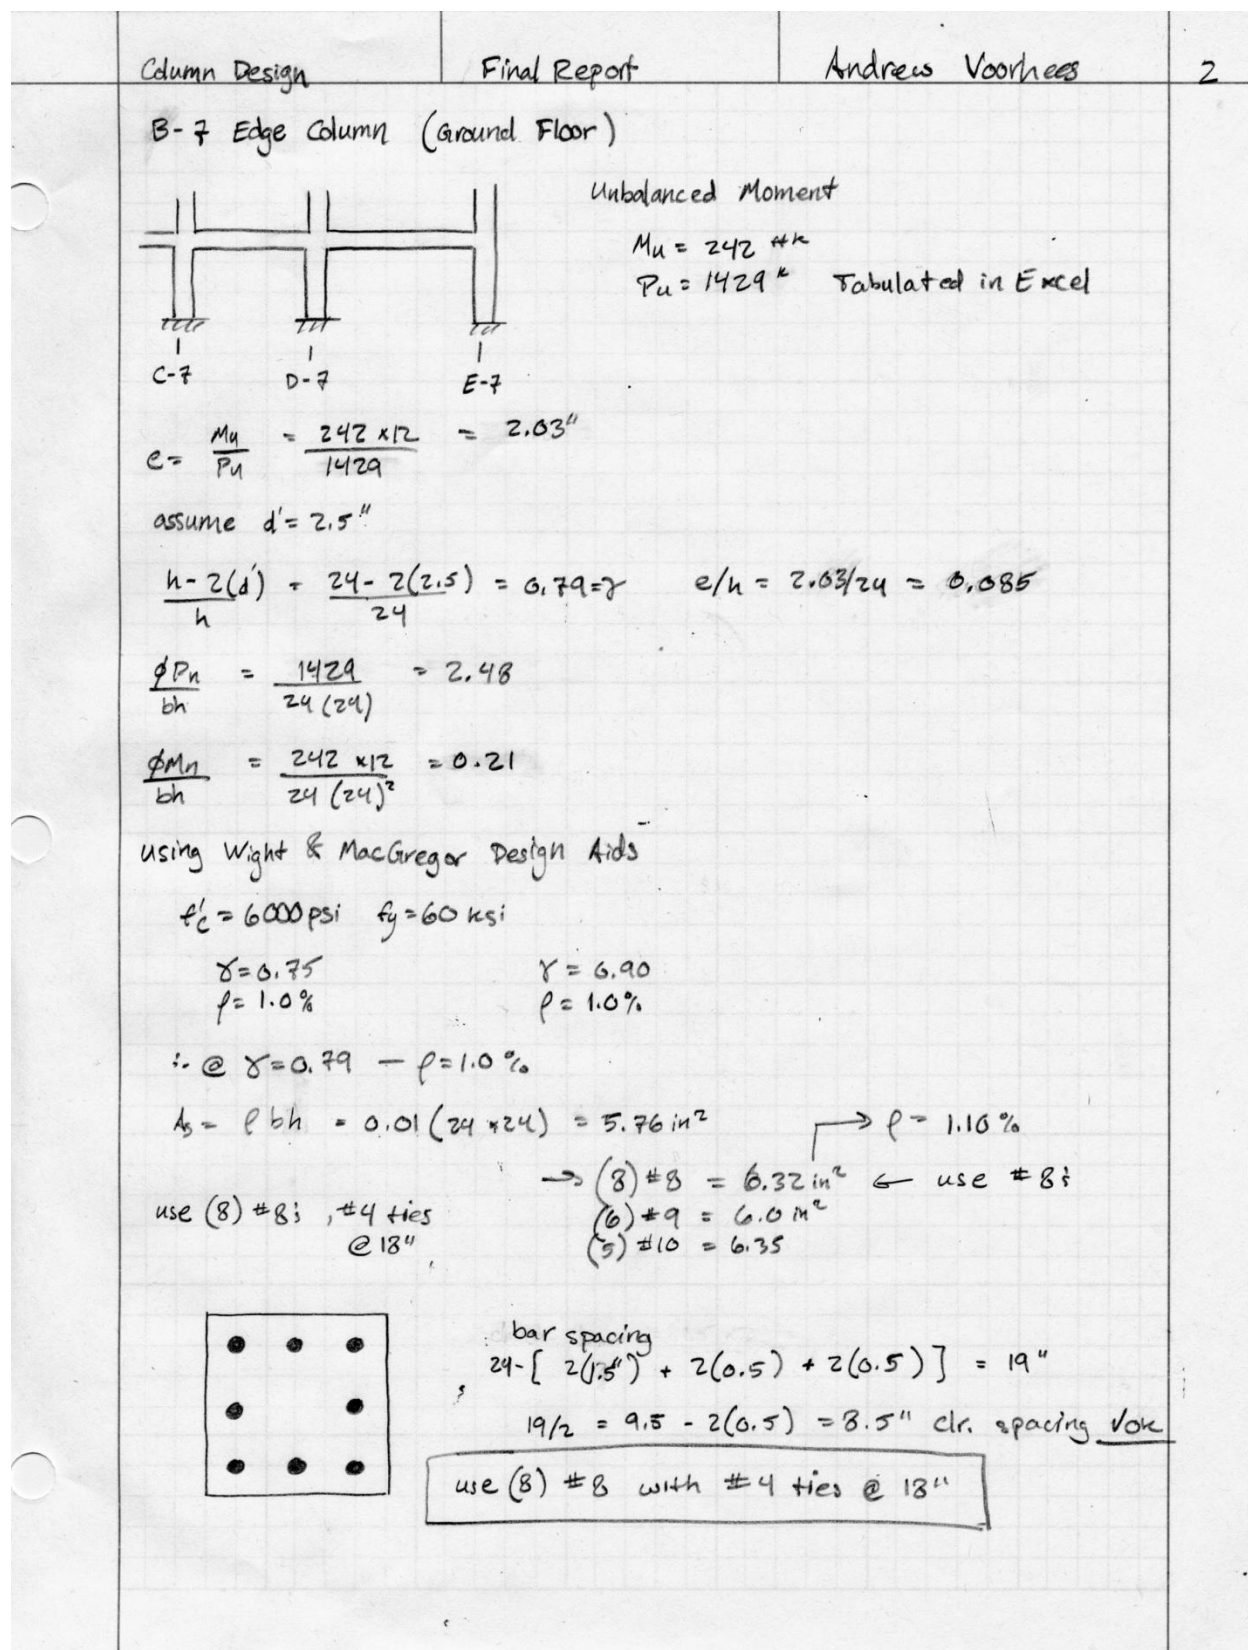 Column Design Final Report Andrew Voorhees 2
B-7 Edge Column (Ground Floor)
Unbalanced Moment
Mu = 242 ftk
Pu = 1429 k Tabulated in Excel
C-7 D-7 E-7
e = Mu/Pu = 242 x12/1429 = 2.03"
assume d' = 2.5"
h - 2(d')/h = 24 - 2(2.5)/24 = 0.79 = γ e/h = 2.03/24 = 0.085
φPn/bh = 1429/24 (24) = 2.48
φMn/bh = 242 x12/24 (24)² = 0.21
using Wight & MacGregor Design Aids
f'c = 6000 psi fy = 60 ksi
γ = 0.75 γ = 0.90
ρ = 1.0% ρ = 1.0%
∴ @ γ = 0.79 — ρ = 1.0%
As = ρbh = 0.01 (24 x 24) = 5.76 in² → ρ = 1.10%
→ (8) #8 = 6.32 in² ← use #8s
use (8) #8s, #4 ties (6) #9 = 6.0 in²
@ 18" (5) #10 = 6.35
bar spacing
24 - [ 2(1.5") + 2(0.5) + 2(0.5) ] = 19"
19/2 = 9.5 - 2(0.5) = 8.5" clr. spacing √ok
use (8) #8 with #4 ties @ 18"